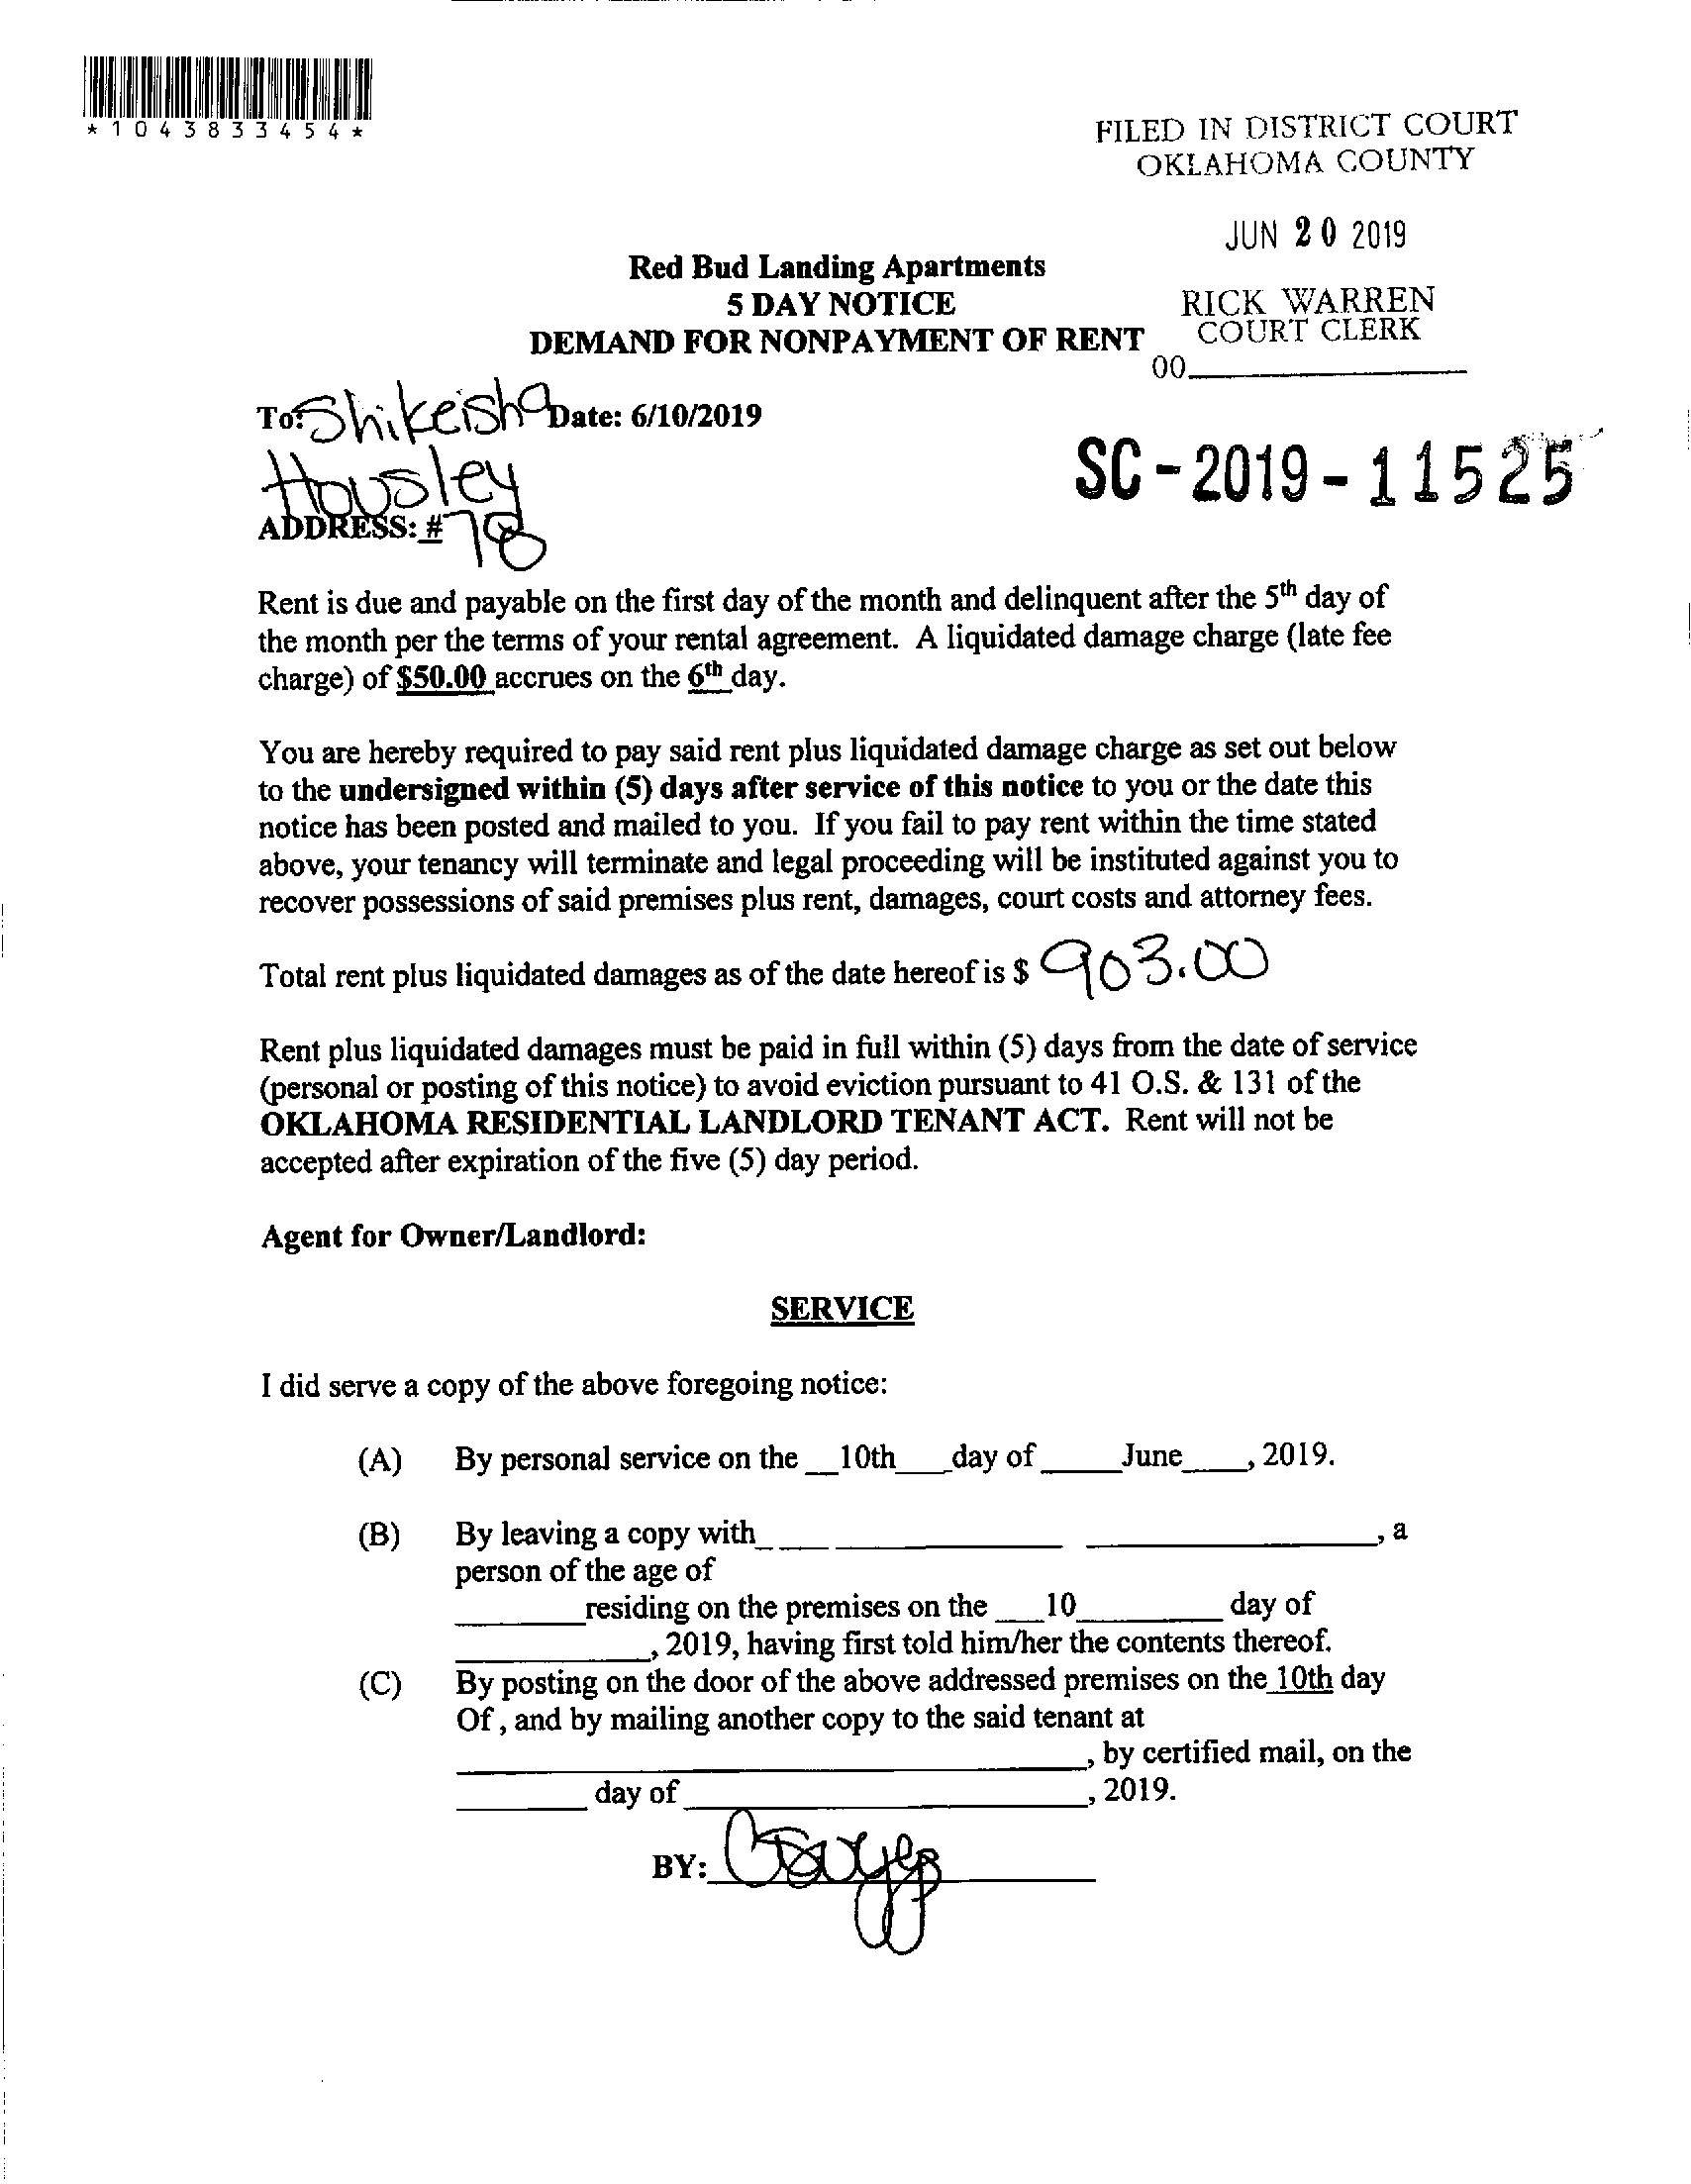 *1043833454*
FILED IN DISTRICT COURT
OKLAHOMA COUNTY
JUN 20 2019
RICK WARREN
COURT CLERK
00
Red Bud Landing Apartments
5 DAY NOTICE
DEMAND FOR NONPAYMENT OF RENT
To: Shikeisha Date: 6/10/2019
Housley
SC-2019-11525
ADDRESS: # 78
Rent is due and payable on the first day of the month and delinquent after the 5th day of
the month per the terms of your rental agreement. A liquidated damage charge (late fee
charge) of $50.00 accrues on the 6th day.
You are hereby required to pay said rent plus liquidated damage charge as set out below
to the undersigned within (5) days after service of this notice to you or the date this
notice has been posted and mailed to you. If you fail to pay rent within the time stated
above, your tenancy will terminate and legal proceeding will be instituted against you to
recover possessions of said premises plus rent, damages, court costs and attorney fees.
Total rent plus liquidated damages as of the date hereof is $ 903.00
Rent plus liquidated damages must be paid in full within (5) days from the date of service
(personal or posting of this notice) to avoid eviction pursuant to 41 O.S. & 131 of the
OKLAHOMA RESIDENTIAL LANDLORD TENANT ACT. Rent will not be
accepted after expiration of the five (5) day period.
Agent for Owner/Landlord:
SERVICE
I did serve a copy of the above foregoing notice:
(A) By personal service on the __10th___day of_____June____, 2019.
(B) By leaving a copy with____________________, a
person of the age of
________residing on the premises on the ___10_________ day of
____________, 2019, having first told him/her the contents thereof.
(C) By posting on the door of the above addressed premises on the_10th day
Of , and by mailing another copy to the said tenant at
____________________, by certified mail, on the
________ day of ____________________, 2019.
BY: